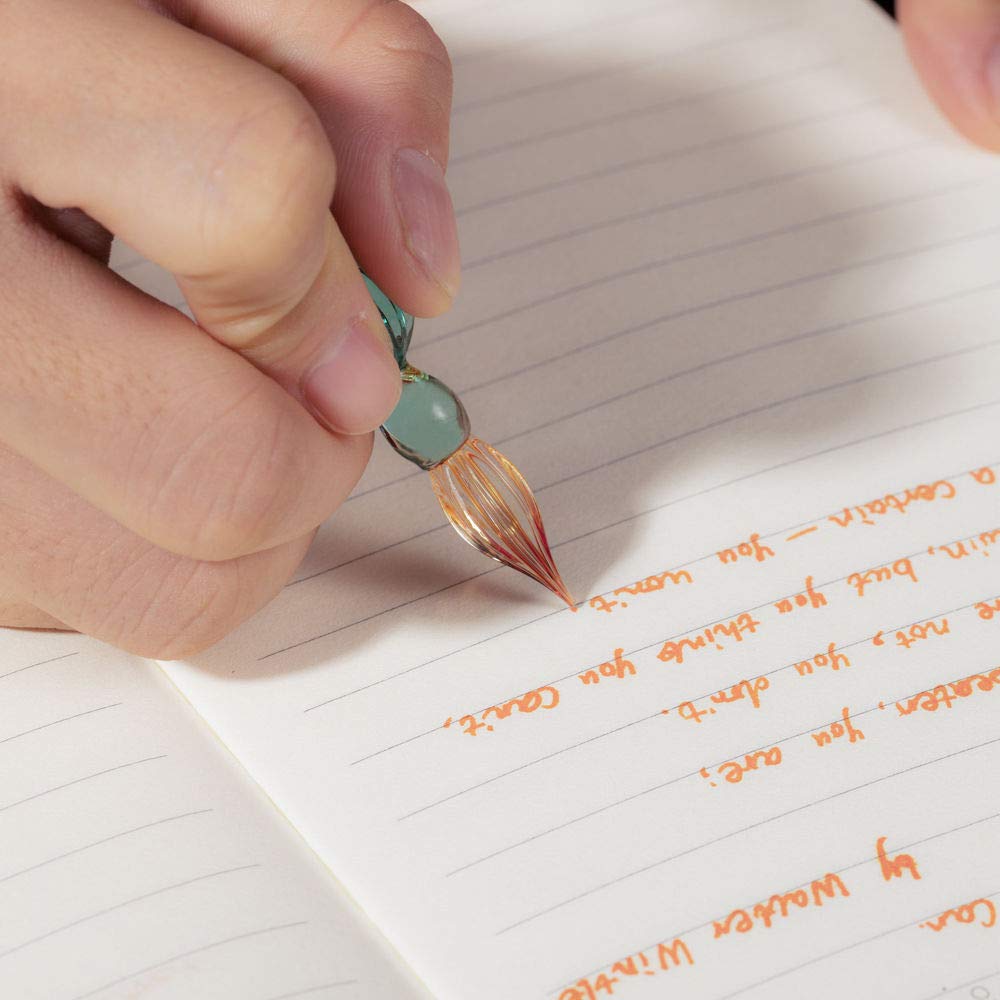 Can.
by Walter Wintle
eaten, you are;
not, you don't.
win, but you think you can't,
a certain — you won't